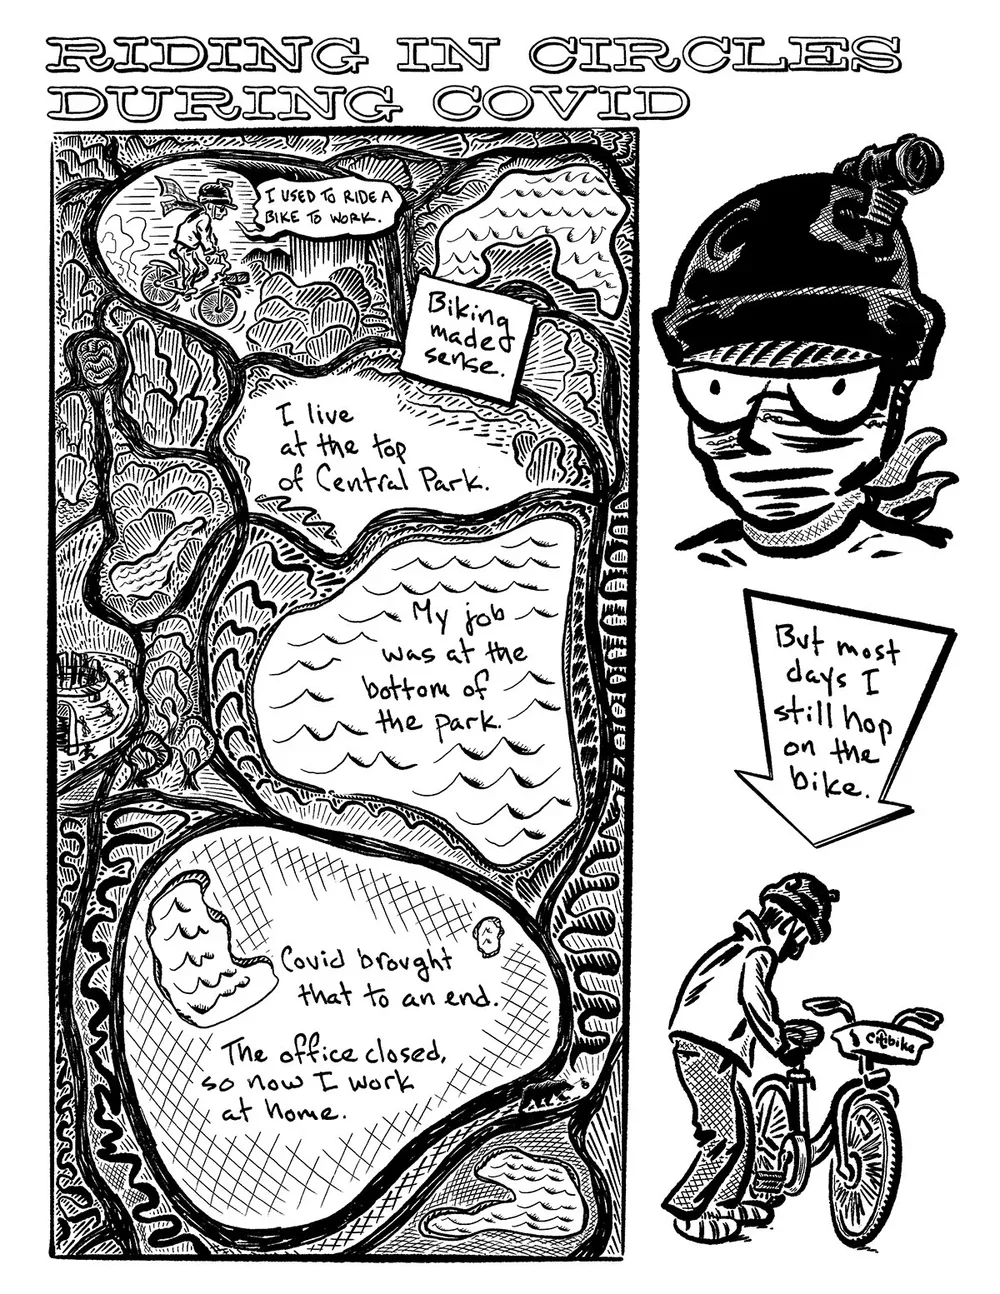 RIDING IN CIRCLES
DURING COVID
I USED TO RIDE A
BIKE TO WORK.
Biking
made
sense.
I live
at the top
of Central Park.
My job
was at the
bottom of
the park.
Covid brought
that to an end.
The office closed,
so now I work
at home.
But most
days I
still hop
on the
bike.
citibike